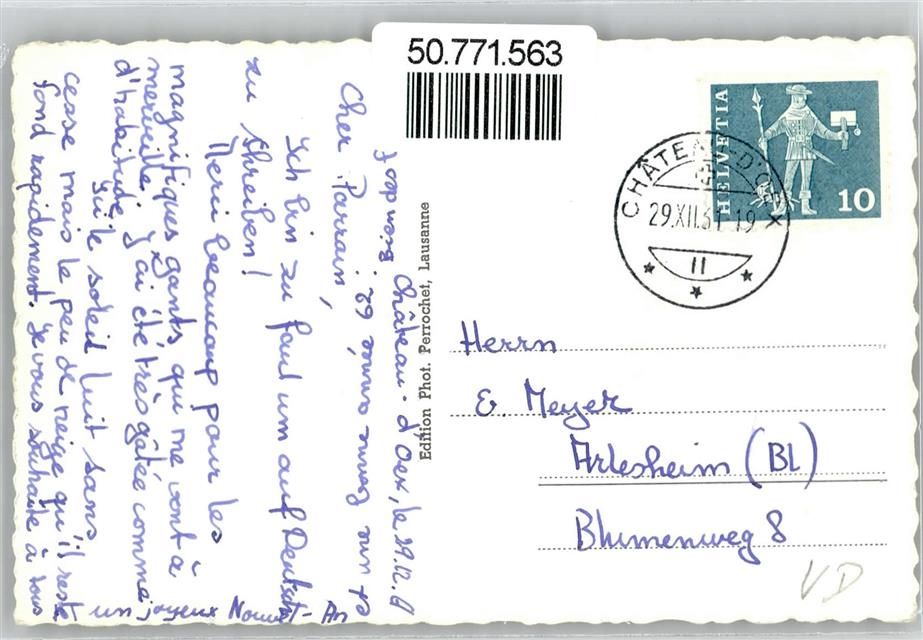 50.771.563
HELVETIA
10
CHÂTEAU-D'OEX
29.XII.61-19
II
Château-d'Oex, le 29.12.61
Cher Parrain,
Ich bin zu faul um auf Deutsch
zu schreiben!
Merci beaucoup pour les
magnifiques gants, qui me vont à
merveille, j'ai été très gâtée comme
d'habitude.
Ici le soleil luit sans
cesse mais le peu de neige qu'il reste
fond rapidement. Je vous souhaite à tous
un joyeux Nouvel-An
Edition Phot. Perrochet, Lausanne
Herrn
E. Meyer
Arlesheim (BL)
Blumenweg 8
VD